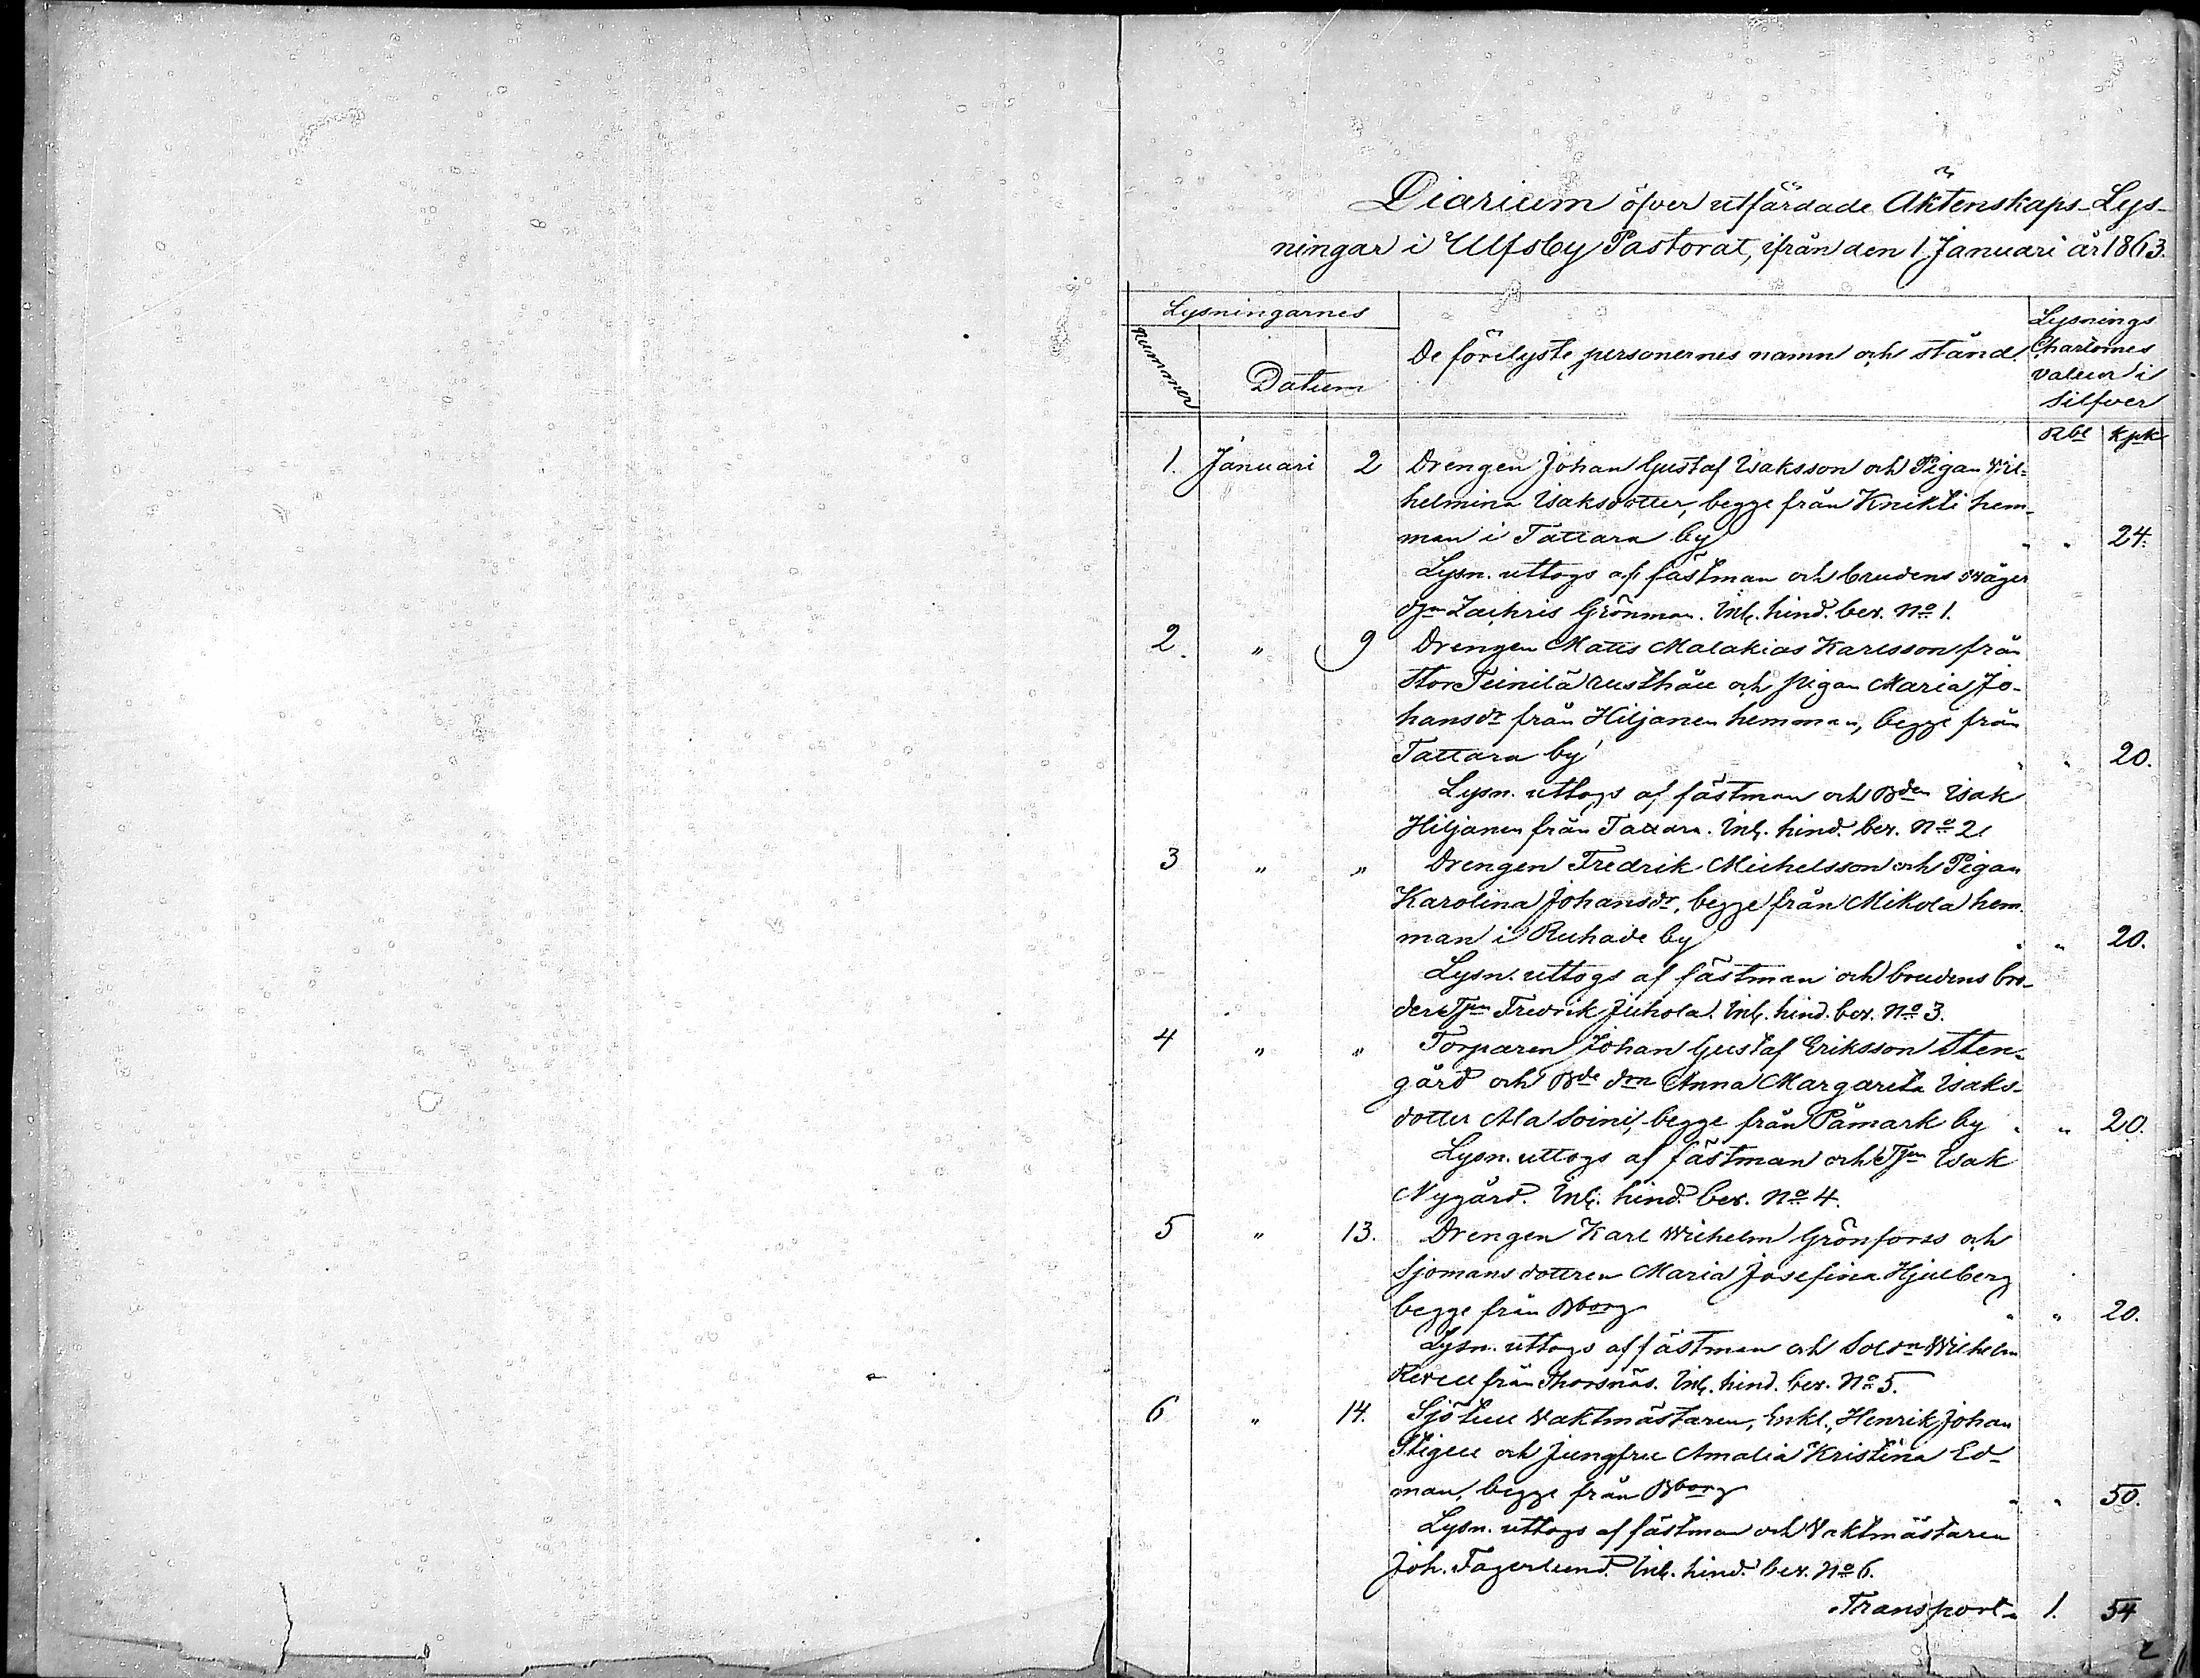 Diarium öfver utfärdade Äktenskaps-Lys-
ningar i Ulfsby Pastorat, ifrån den 1 Januari år 1863.
Lysningarnes
Nummer
Datum
De förelyste personernes namn och stånd.
Lysnings
Chartornes
valeur i
Silfver
Rbl Kpk
1. Januari 2 Drengen Johan Gustaf Isaksson och Pigan Wil-
helmina Isaksdotter, begge från Knikti hem-
man i Tattara by " " 24.
Lysn. uttogs af fästman och brudens swåger
Zachris Grönman. Inl. hind. bev. No 1.
2. " 9 Drengen Matts Malakias Karlsson från
Stor Teinilä rusthåll och pigan Maria Jo-
hansdr från Hiljanen hemman, begge från
Tattara by " " 20.
Lysn. uttogs af fästman och Bden Isak
Hiljanen från Tattara. Inl. hind. bev. No 2.
3 " " Drengen Fredrik Michelsson och Pigan
Karolina Johansdr, begge från Mikola hem-
man i Ruhade by " " 20.
Lysn. uttogs af fästman och brudens bro-
der Tjen Fredrik Juhola. Inl. hind. bev. No 3.
4 " " Torparen Johan Gustaf Eriksson Sten-
gård och Bde don Anna Margareta Isaks-
dotter Ala Soini, begge från Påmark by " " 20.
Lysn. uttogs af fästman och Tjen Isak
Nygård. Inl. hind. bev. No 4.
5 " 13. Drengen Karl Wilhelm Grönforss och
Sjomansdottren Maria Josefina Hjulberg
begge från Bborg " " 20.
Lysn. uttogs af fästman och Soldn Wilhelm
från Thorsnäs. Inl. hind. bev. No 5.
6 " 14. Sjötull Waktmästaren, Enkl., Henrik Johan
Stigell och Jungfru Amalia Kristina Ed-
man, begge från Bborg " " 50.
Lysn. uttogs af fästman och Vaktmästaren
Joh. Fagerlund. Inl. hind. bev. No 6.
Transport " 1. 54
2